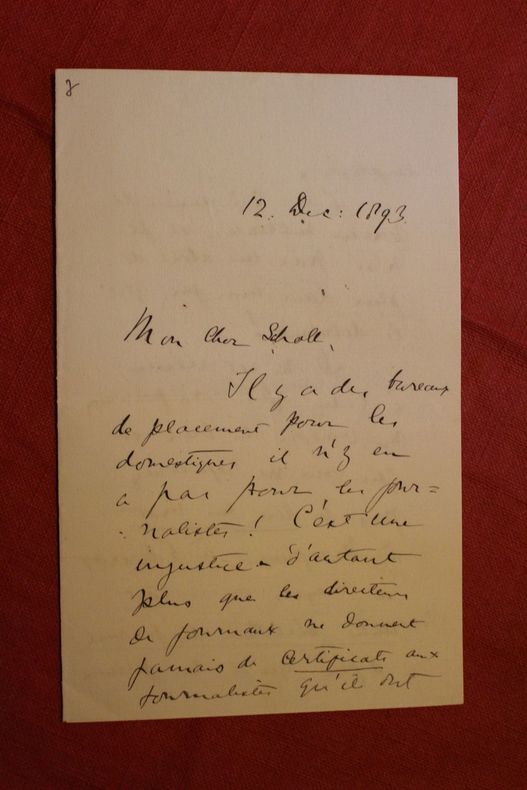 12. Dec: 1893
Mon cher Scholl,
Il y a des bureaux
de placement pour les
domestiques il n'y en
a pas pour les jour=
nalistes! C'est une
injustice d'autant
plus que les directeurs
de journaux ne donnent
jamais de certificats aux
journalistes qu'ils ont